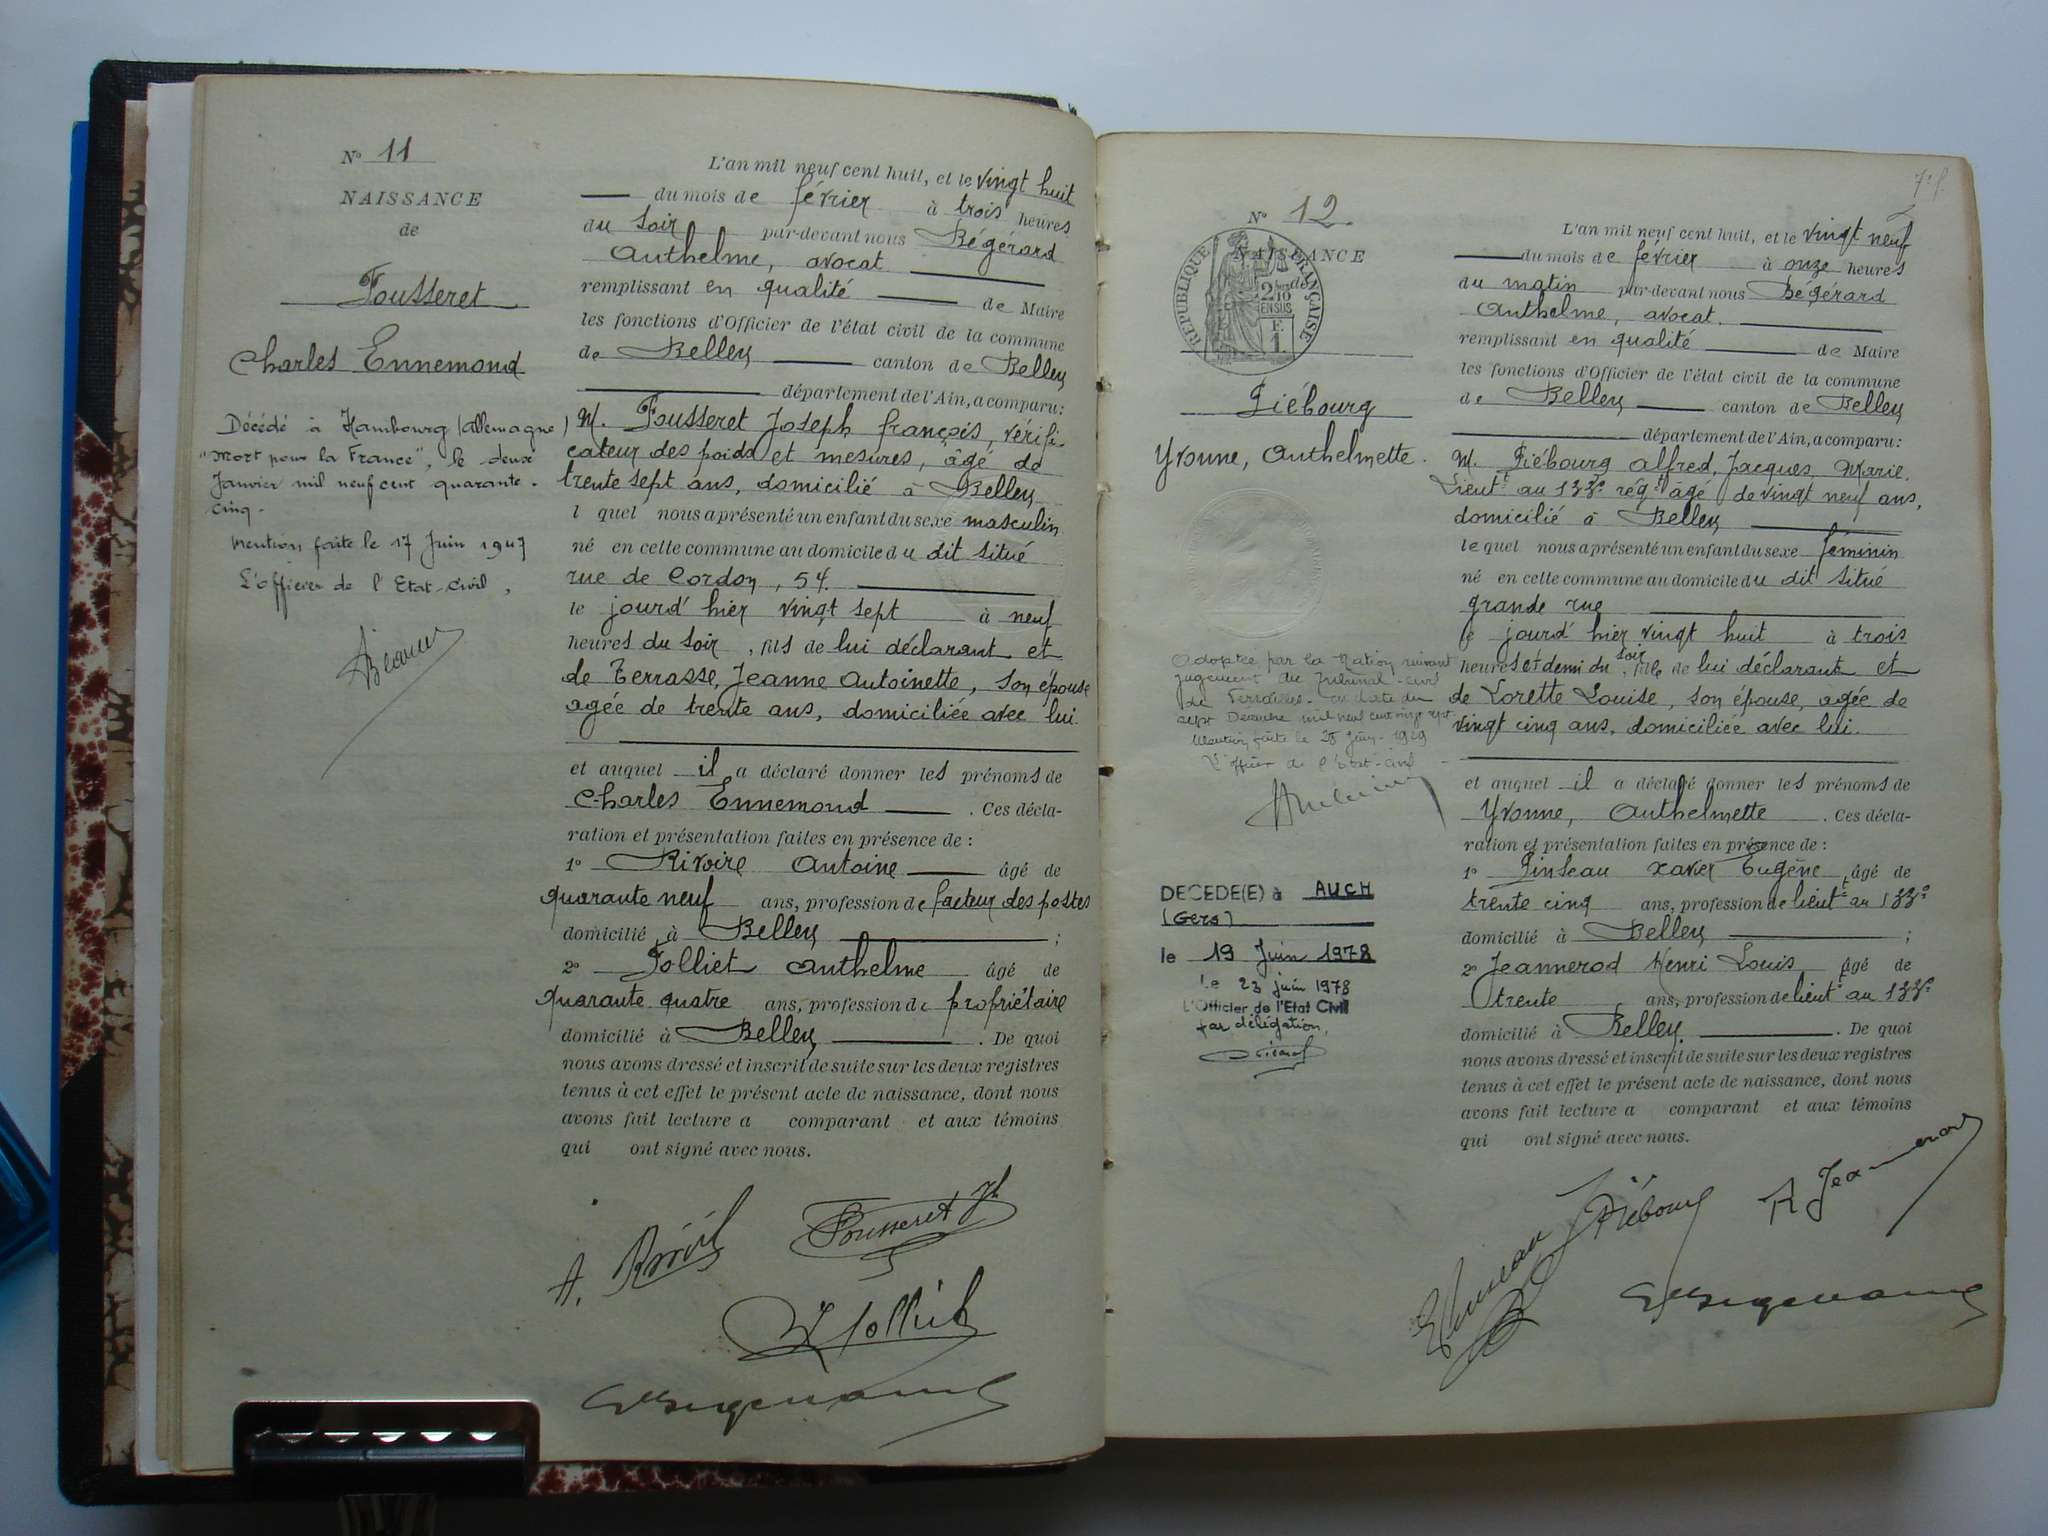 N° 11
NAISSANCE
de
Fousseret
Charles Ennemond
Décédé à Hambourg (allemagne)
"Mort pour la France", le deux
Janvier mil neuf cent quarante-
cinq.
Mention faite le 17 Juin 1947
L'officier de l'Etat-civil,
L'an mil neuf cent huit, et le vingt huit
du mois de février à trois heures
du soir par-devant nous Bégérard
Anthelme, avocat
remplissant en qualité de Maire
les fonctions d'Officier de l'état civil de la commune
de Belley canton de Belley
département de l'Ain, a comparu:
M. Fousseret Joseph françois, vérifi-
cateur des poids et mesures, âgé de
trente sept ans, domicilié à Belley
l quel nous a présenté un enfant du sexe masculin
né en cette commune au domicile du dit situé
rue de Cordon, 54.
le jourd'hier vingt sept à neuf
heures du soir, fils de lui déclarant et
de Terrasse, Jeanne Antoinette, son épouse
agée de trente ans, domiciliée avec lui.
et auquel il a déclaré donner les prénoms de
Charles Ennemond . Ces décla-
ration et présentation faites en présence de :
1° Rivoire Antoine âgé de
quarante neuf ans, profession de facteur des postes
domicilié à Belley ;
2° Folliet Anthelme âgé de
quarante quatre ans, profession de propriétaire
domicilié à Belley . De quoi
nous avons dressé et inscrit de suite sur les deux registres
tenus à cet effet le présent acte de naissance, dont nous
avons fait lecture a comparant et aux témoins
qui ont signé avec nous.
Fousseret Jh
N° 12
NAISSANCE
de
REPUBLIQUE FRANÇAISE
2/10 EN SUS
F. 1
Piébourg
Yvonne, Anthelmette.
Adoptée par la Nation suivant
jugement du Tribunal-civil
de Versailles- en date du
sept Décembre mil neuf cent vingt sept
Mention faite le 28 Juin 1929
L'officier de l'Etat-civil
DECEDE(E) à AUCH
(Gers)
le 19 Juin 1978
Le 23 juin 1978
L'Officier de l'Etat Civil
par délégation,
L'an mil neuf cent huit, et le vingt neuf
du mois de février à onze heures
du matin par-devant nous Bégérard
Anthelme, avocat.
remplissant en qualité de Maire
les fonctions d'Officier de l'état civil de la commune
de Belley canton de Belley
département de l'Ain, a comparu:
M. Piébourg Alfred, Jacques, Marie.
Lieut^t au 133e régt âgé de vingt neuf ans,
domicilié à Belley
le quel nous a présenté un enfant du sexe féminin
né en cette commune au domicile du dit situé
grande rue
le jourd'hier vingt huit à trois
heures et demi du soir, fille de lui déclarant et
de Lorette Louise, son épouse, agée de
vingt cinq ans, domiciliée avec lui.
et auquel il a déclaré donner les prénoms de
Yvonne, Anthelmette . Ces décla-
ration et présentation faites en présence de :
1° Pinseau Xavier Eugène, âgé de
trente cinq ans, profession de lieut^t au 133e
domicilié à Belley ;
2° Jeannerod Henri Louis âgé de
trente ans, profession de lieut^t au 133e
domicilié à Belley. . De quoi
nous avons dressé et inscrit de suite sur les deux registres
tenus à cet effet le présent acte de naissance, dont nous
avons fait lecture a comparant et aux témoins
qui ont signé avec nous.
Piébourg